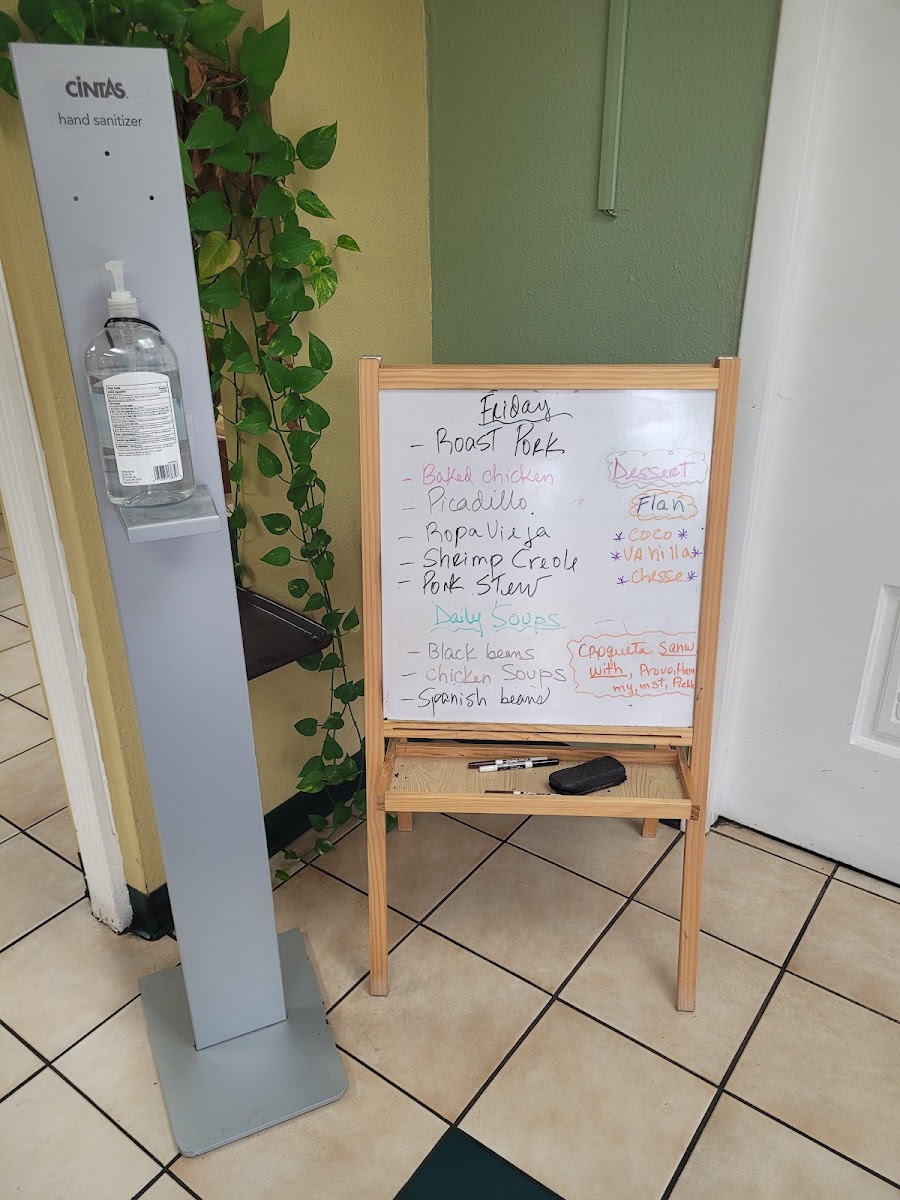 CINTAS
hand sanitizer
Friday
- Roast Pork
- Baked chicken
- Picadillo
- Ropa Vieja
- Shrimp Creole
- Pork Stew
Daily Soups
- Black beans
- chicken Soups
- Spanish beans
Dessert
Flan
*coco*
*vanilla*
*chesse*
Croqueta Sanw
with, Provo, Ham
my, mst, Pickl